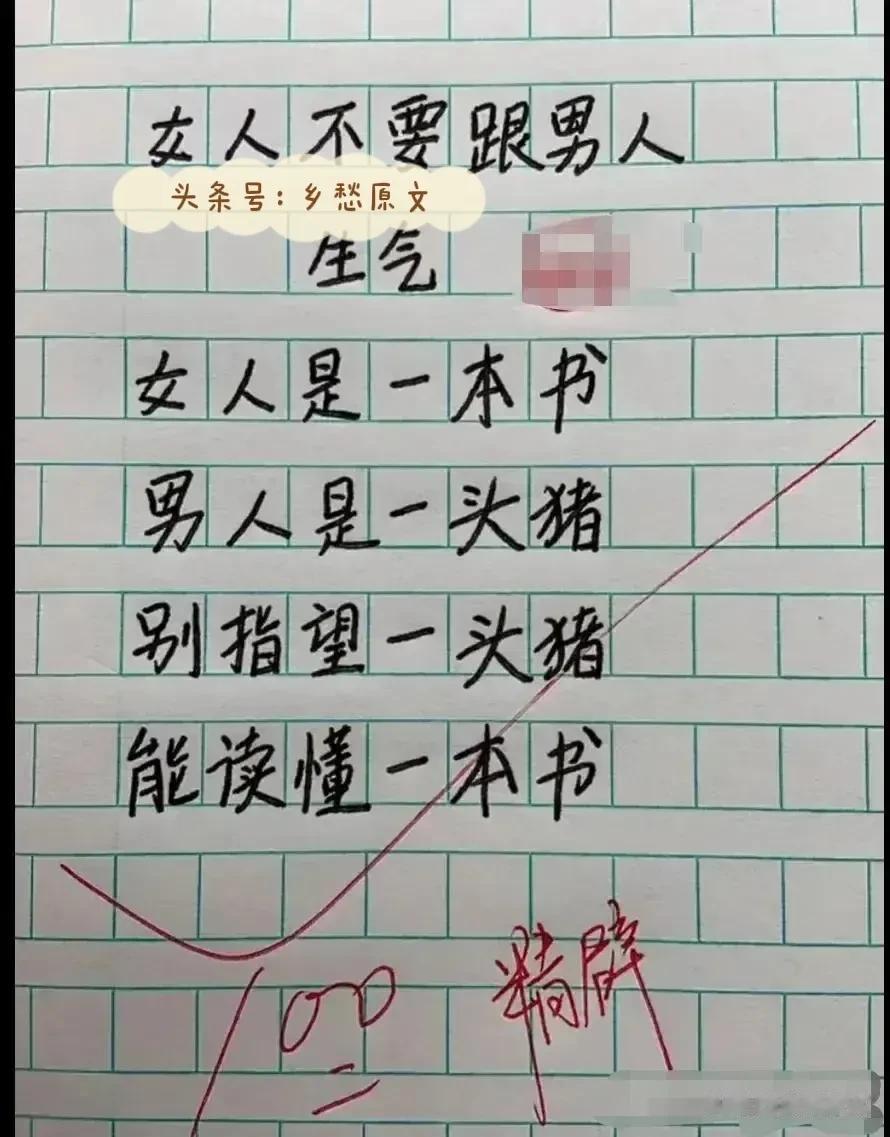 女人不要跟男人
头条号：乡愁原文
生气
女人是一本书
男人是一头猪
别指望一头猪
能读懂一本书
100
精辟